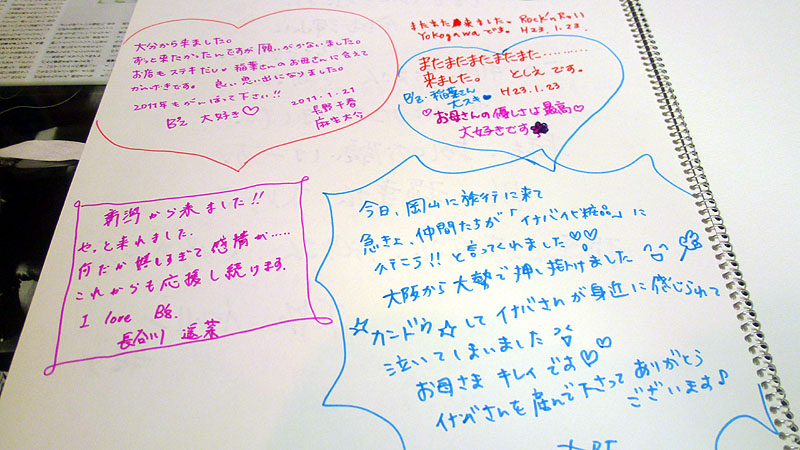 大分から来ました。
ずっと来たかたんですが願いがかないました。
お店もステキだし、稲葉さんのお母さんに会えて
かんげきです。良い思い出になりました。
2011年もがんばって下さい!!
B'z 大好き♡
2011.1.21
長野千春
麻生大介
またまた来ました。Rock'n Roll
Yokogawaです。H23.1.23.
またまたまたまたまた………
来ました。としえです。
B'z・稲葉さん
大スキ
H23.1.23
♡お母さんの優しさは最高♡
大好きです
新潟から来ました!!
やっと来れました.
何だか嬉しすぎて感情が.....
これからも応援し続けます.
I love B'z.
長谷川
今日、岡山に旅行に来て
急きょ、仲間たちが「イナバ化粧品」に
行こう!!と言ってくれました♡♡
大阪から大勢で押し掛けました
☆カンドウ☆してイナバさんが身近に感じられて
泣いてしまいました
お母さまキレイです♡♡
イナバさんを産んで下さってありがとう
ございます♪